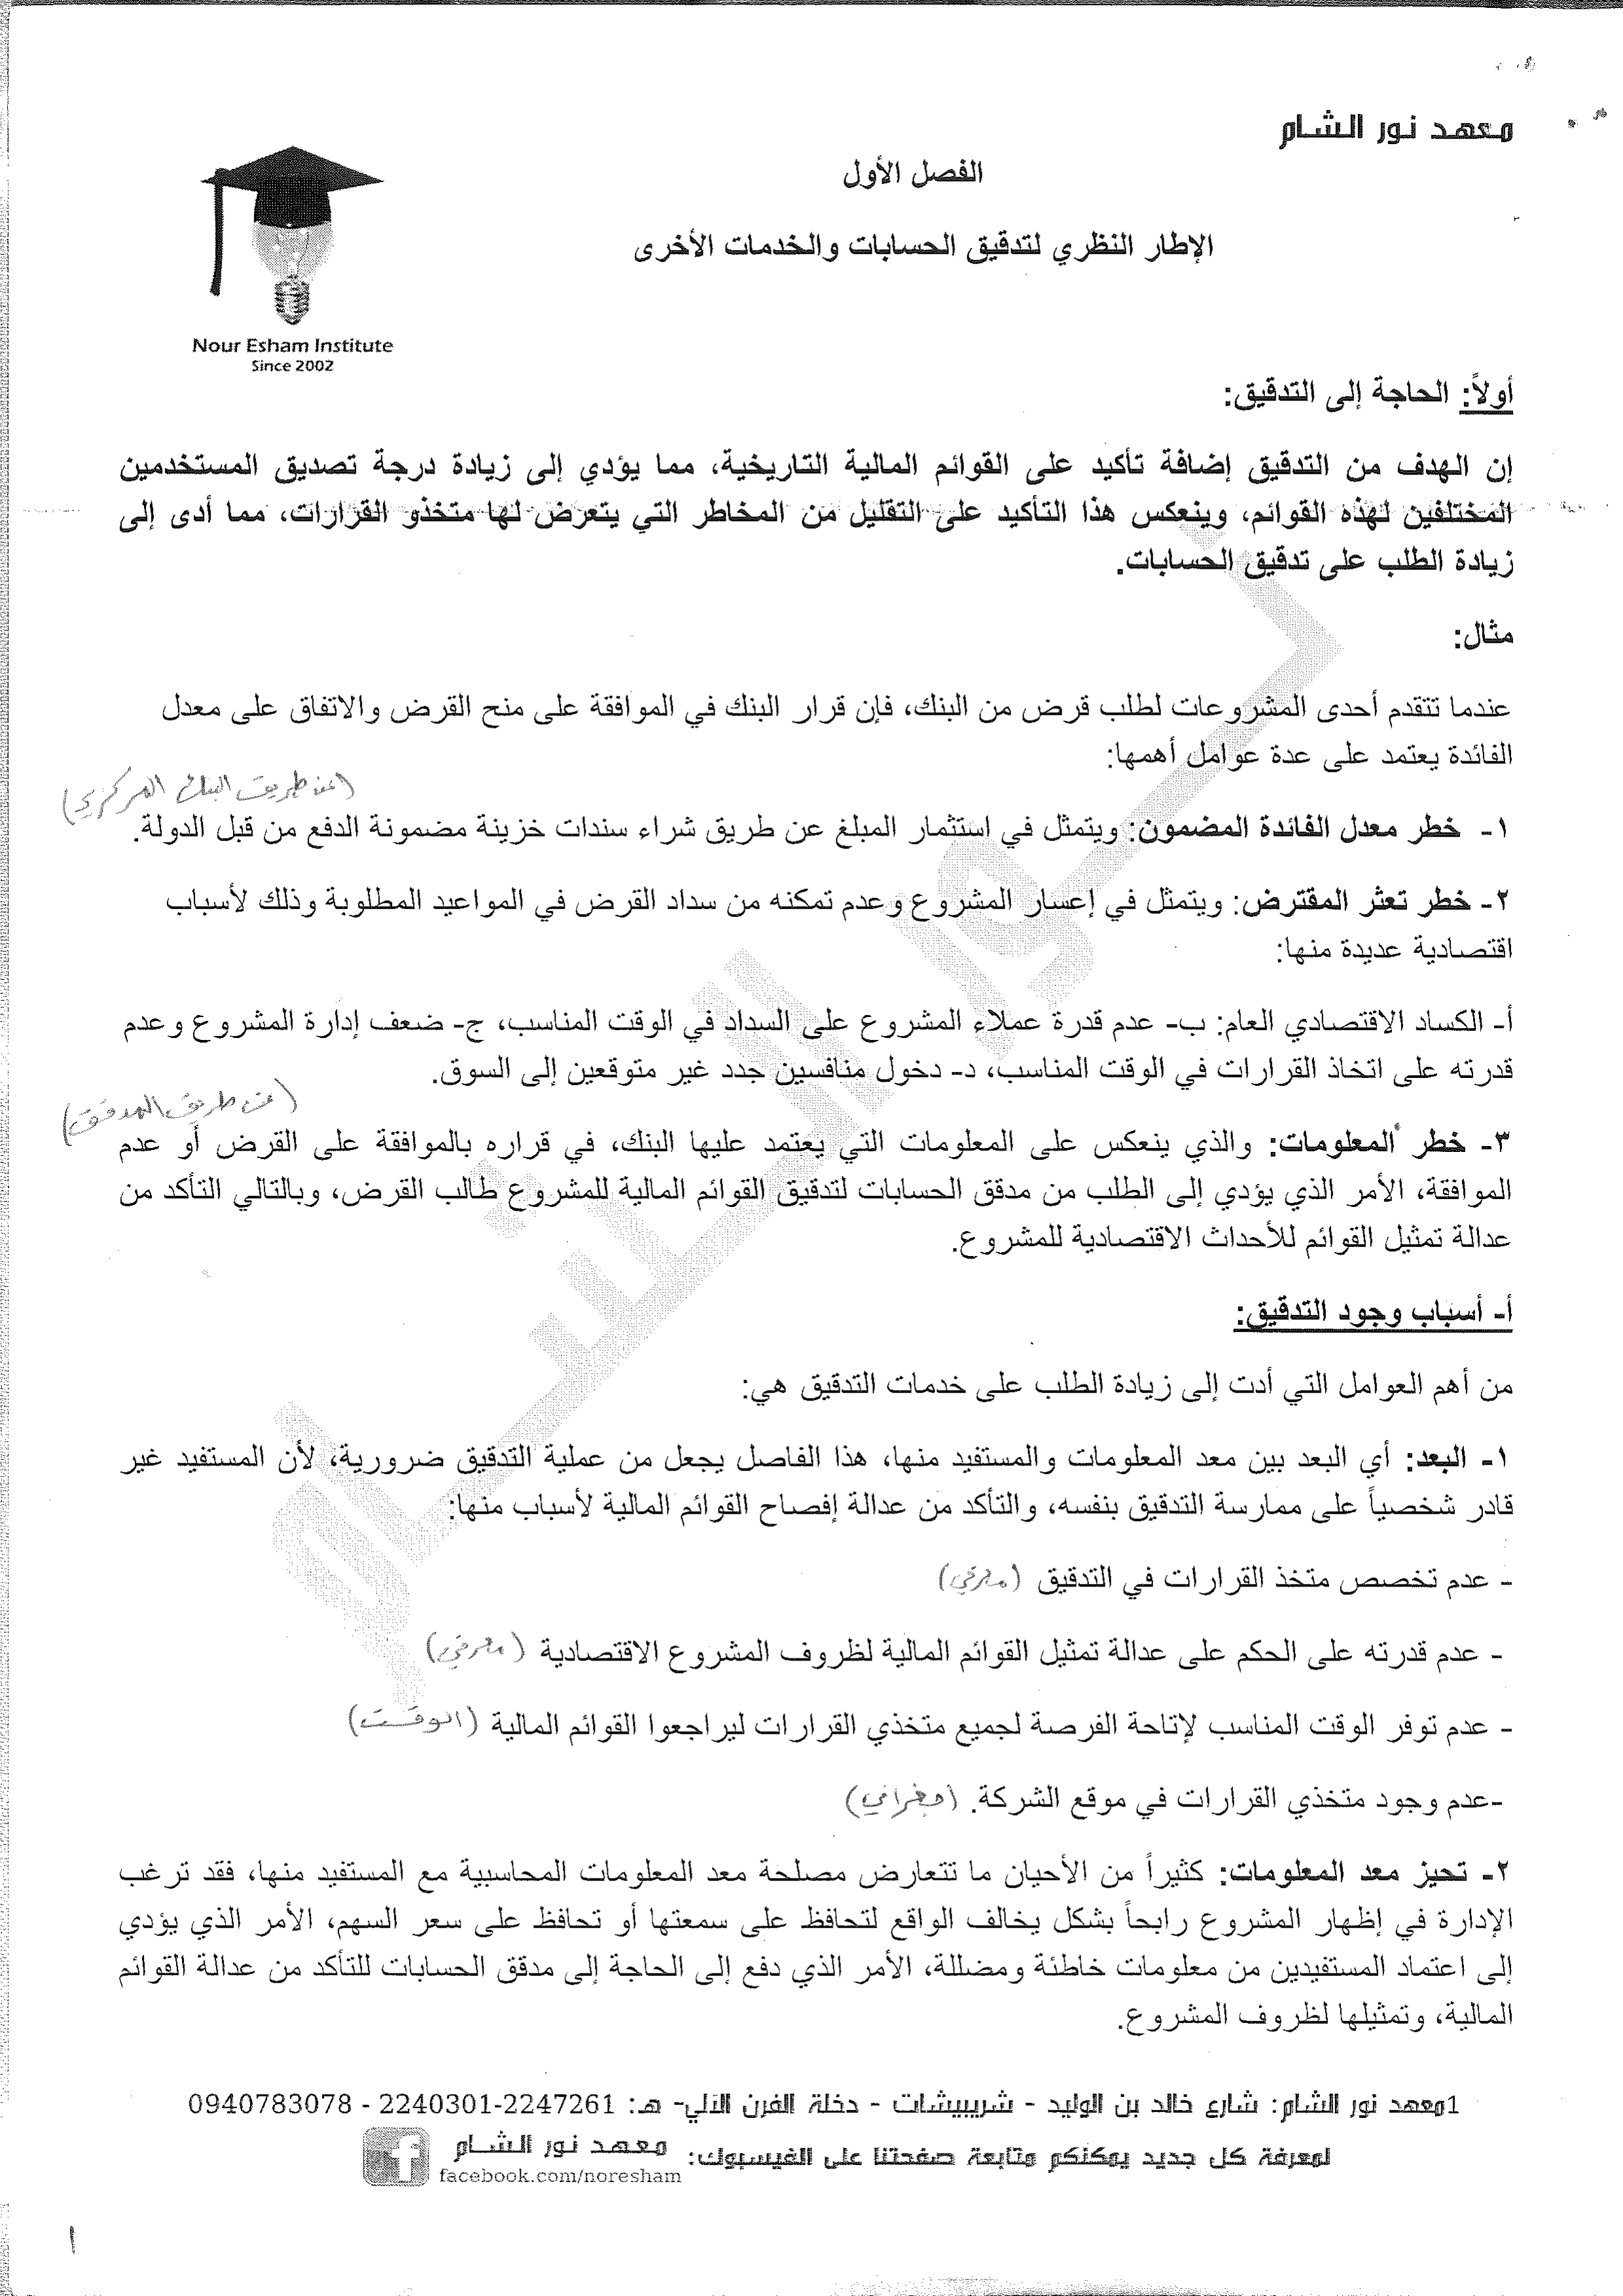 معهد نور الشام
الفصل الأول
الإطار النظري لتدقيق الحسابات والخدمات الأخرى
Nour Esham Institute
Since 2002
أولاً: الحاجة إلى التدقيق:
إن الهدف من التدقيق إضافة تأكيد على القوائم المالية التاريخية، مما يؤدي إلى زيادة درجة تصديق المستخدمين
المختلفين لهذه القوائم، وينعكس هذا التأكيد على التقليل من المخاطر التي يتعرض لها متخذو القرارات، مما أدى إلى
زيادة الطلب على تدقيق الحسابات.
مثال:
عندما تتقدم أحدى المشروعات لطلب قرض من البنك، فإن قرار البنك في الموافقة على منح القرض والاتفاق على معدل
الفائدة يعتمد على عدة عوامل أهمها:
(عن طريق البنك المركزي)
١- خطر معدل الفائدة المضمون: ويتمثل في استثمار المبلغ عن طريق شراء سندات خزينة مضمونة الدفع من قبل الدولة.
٢- خطر تعثر المقترض: ويتمثل في إعسار المشروع وعدم تمكنه من سداد القرض في المواعيد المطلوبة وذلك لأسباب
اقتصادية عديدة منها:
أ- الكساد الاقتصادي العام: ب- عدم قدرة عملاء المشروع على السداد في الوقت المناسب، ج- ضعف إدارة المشروع وعدم
قدرته على اتخاذ القرارات في الوقت المناسب، د- دخول منافسين جدد غير متوقعين إلى السوق.
(عن طريق المدقق)
٣- خطر المعلومات: والذي ينعكس على المعلومات التي يعتمد عليها البنك، في قراره بالموافقة على القرض أو عدم
الموافقة، الأمر الذي يؤدي إلى الطلب من مدقق الحسابات لتدقيق القوائم المالية للمشروع طالب القرض، وبالتالي التأكد من
عدالة تمثيل القوائم للأحداث الاقتصادية للمشروع.
أ- أسباب وجود التدقيق:
من أهم العوامل التي أدت إلى زيادة الطلب على خدمات التدقيق هي:
١- البعد: أي البعد بين معد المعلومات والمستفيد منها، هذا الفاصل يجعل من عملية التدقيق ضرورية، لأن المستفيد غير
قادر شخصياً على ممارسة التدقيق بنفسه، والتأكد من عدالة إفصاح القوائم المالية لأسباب منها:
- عدم تخصص متخذ القرارات في التدقيق (معرفي)
- عدم قدرته على الحكم على عدالة تمثيل القوائم المالية لظروف المشروع الاقتصادية (معرفي)
- عدم توفر الوقت المناسب لإتاحة الفرصة لجميع متخذي القرارات ليراجعوا القوائم المالية (الوقت)
-عدم وجود متخذي القرارات في موقع الشركة. (جغرافي)
٢- تحيز معد المعلومات: كثيراً من الأحيان ما تتعارض مصلحة معد المعلومات المحاسبية مع المستفيد منها، فقد ترغب
الإدارة في إظهار المشروع رابحاً بشكل يخالف الواقع لتحافظ على سمعتها أو تحافظ على سعر السهم، الأمر الذي يؤدي
إلى اعتماد المستفيدين من معلومات خاطئة ومضللة، الأمر الذي دفع إلى الحاجة إلى مدقق الحسابات للتأكد من عدالة القوائم
المالية، وتمثيلها لظروف المشروع.
1معهد نور الشام: شارع خالد بن الوليد - شريبيشات - دخلة الفرن الآلي- هـ: 2247261-2240301 - 0940783078
لمعرفة كل جديد يمكنكم متابعة صفحتنا على الفيسبوك: معهد نور الشام
facebook.com/noresham
١